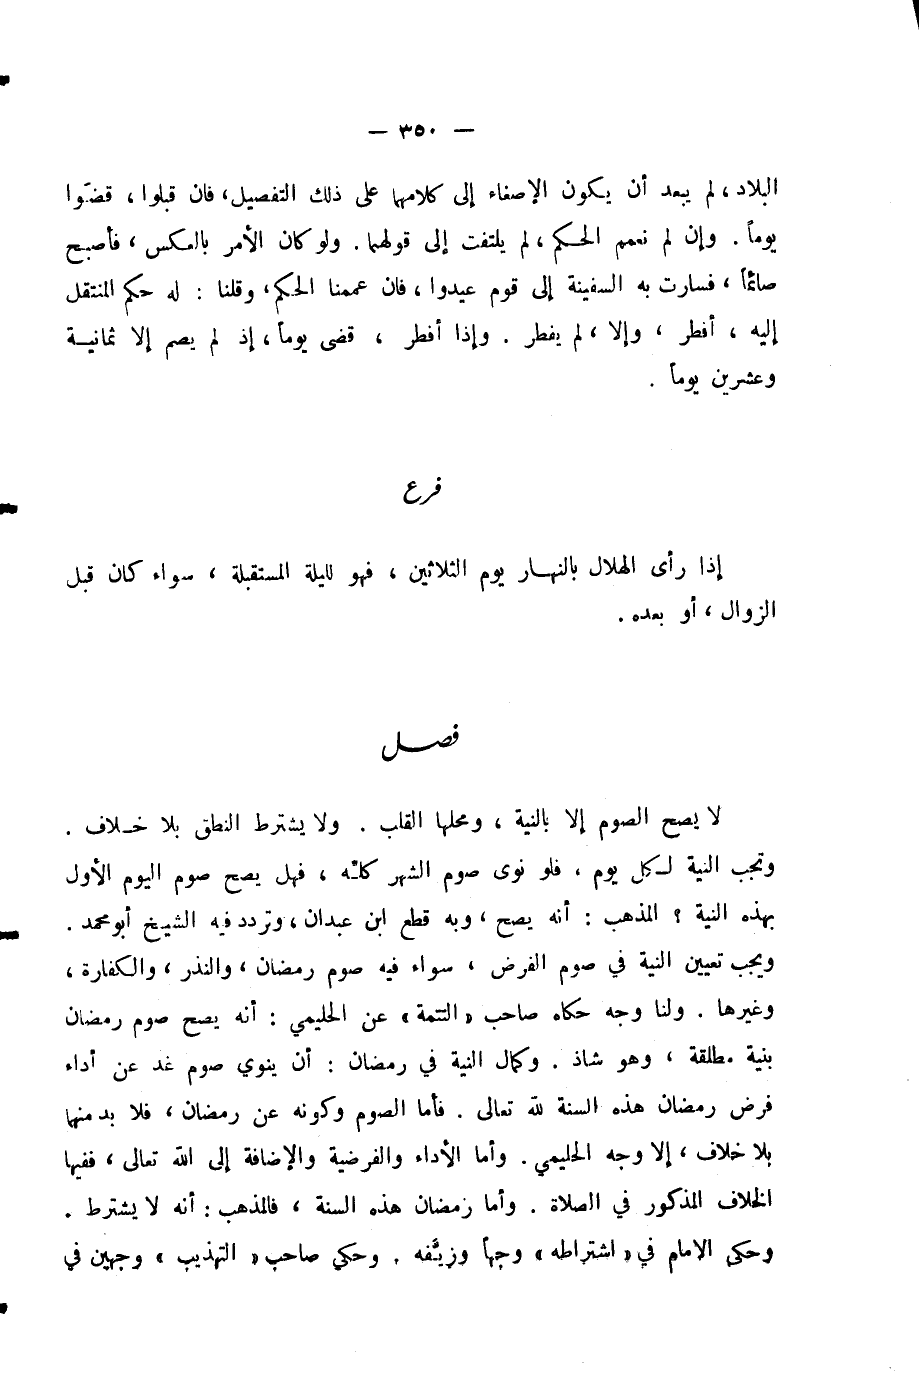 — ٣٥٠ —
البلاد ، لم يبعد أن يكون الإصغاء إلى كلامها على ذلك التفصيل ، فان قبلوا ، قضَوا
يوماً . وإن لم نعمم الحكم ، لم يلتفت إلى قولهما . ولو كان الأمر بالعكس ، فأصبح
صائماً ، فسارت به السفينة إلى قوم عيدوا ، فان عممنا الحكم ، وقلنا : له حكم المنتقل
إليه ، أفطر ، وإلا ، لم يفطر . وإذا أفطر ، قضى يوماً ، إذ لم يصم إلا ثمانية
وعشرين يوماً .
فرع
إذا رأى الهلال بالنهار يوم الثلاثين ، فهو لليلة المستقبلة ، سواء كان قبل
الزوال ، أو بعده .
فصل
لا يصح الصوم إلا بالنية ، ومحلها القلب . ولا يشترط النطق بلا خلاف .
وتجب النية لكل يوم ، فلو نوى صوم الشهر كلِّه ، فهل يصح صوم اليوم الأول
بهذه النية ؟ المذهب : أنه يصح ، وبه قطع ابن عبدان ، وتردد فيه الشيخ أبو محمد .
ويجب تعيين النية في صوم الفرض ، سواء فيه صوم رمضان ، والنذر ، والكفارة ،
وغيرها . ولنا وجه حكاه صاحب « التتمة » عن الحليمي : أنه يصح صوم رمضان
بنية مطلقة ، وهو شاذ . وكمال النية في رمضان : أن ينوي صوم غد عن أداء
فرض رمضان هذه السنة لله تعالى . فأما الصوم وكونه عن رمضان ، فلا بد منها
بلا خلاف ، إلا وجه الحليمي . وأما الأداء والفرضية والإضافة إلى الله تعالى ، ففيها
الخلاف المذكور في الصلاة . وأما رمضان هذه السنة ، فالمذهب : أنه لا يشترط .
وحكى الإمام في « اشتراطه » وجهاً وزيَّفه . وحكي صاحب « التهذيب » وجهين في